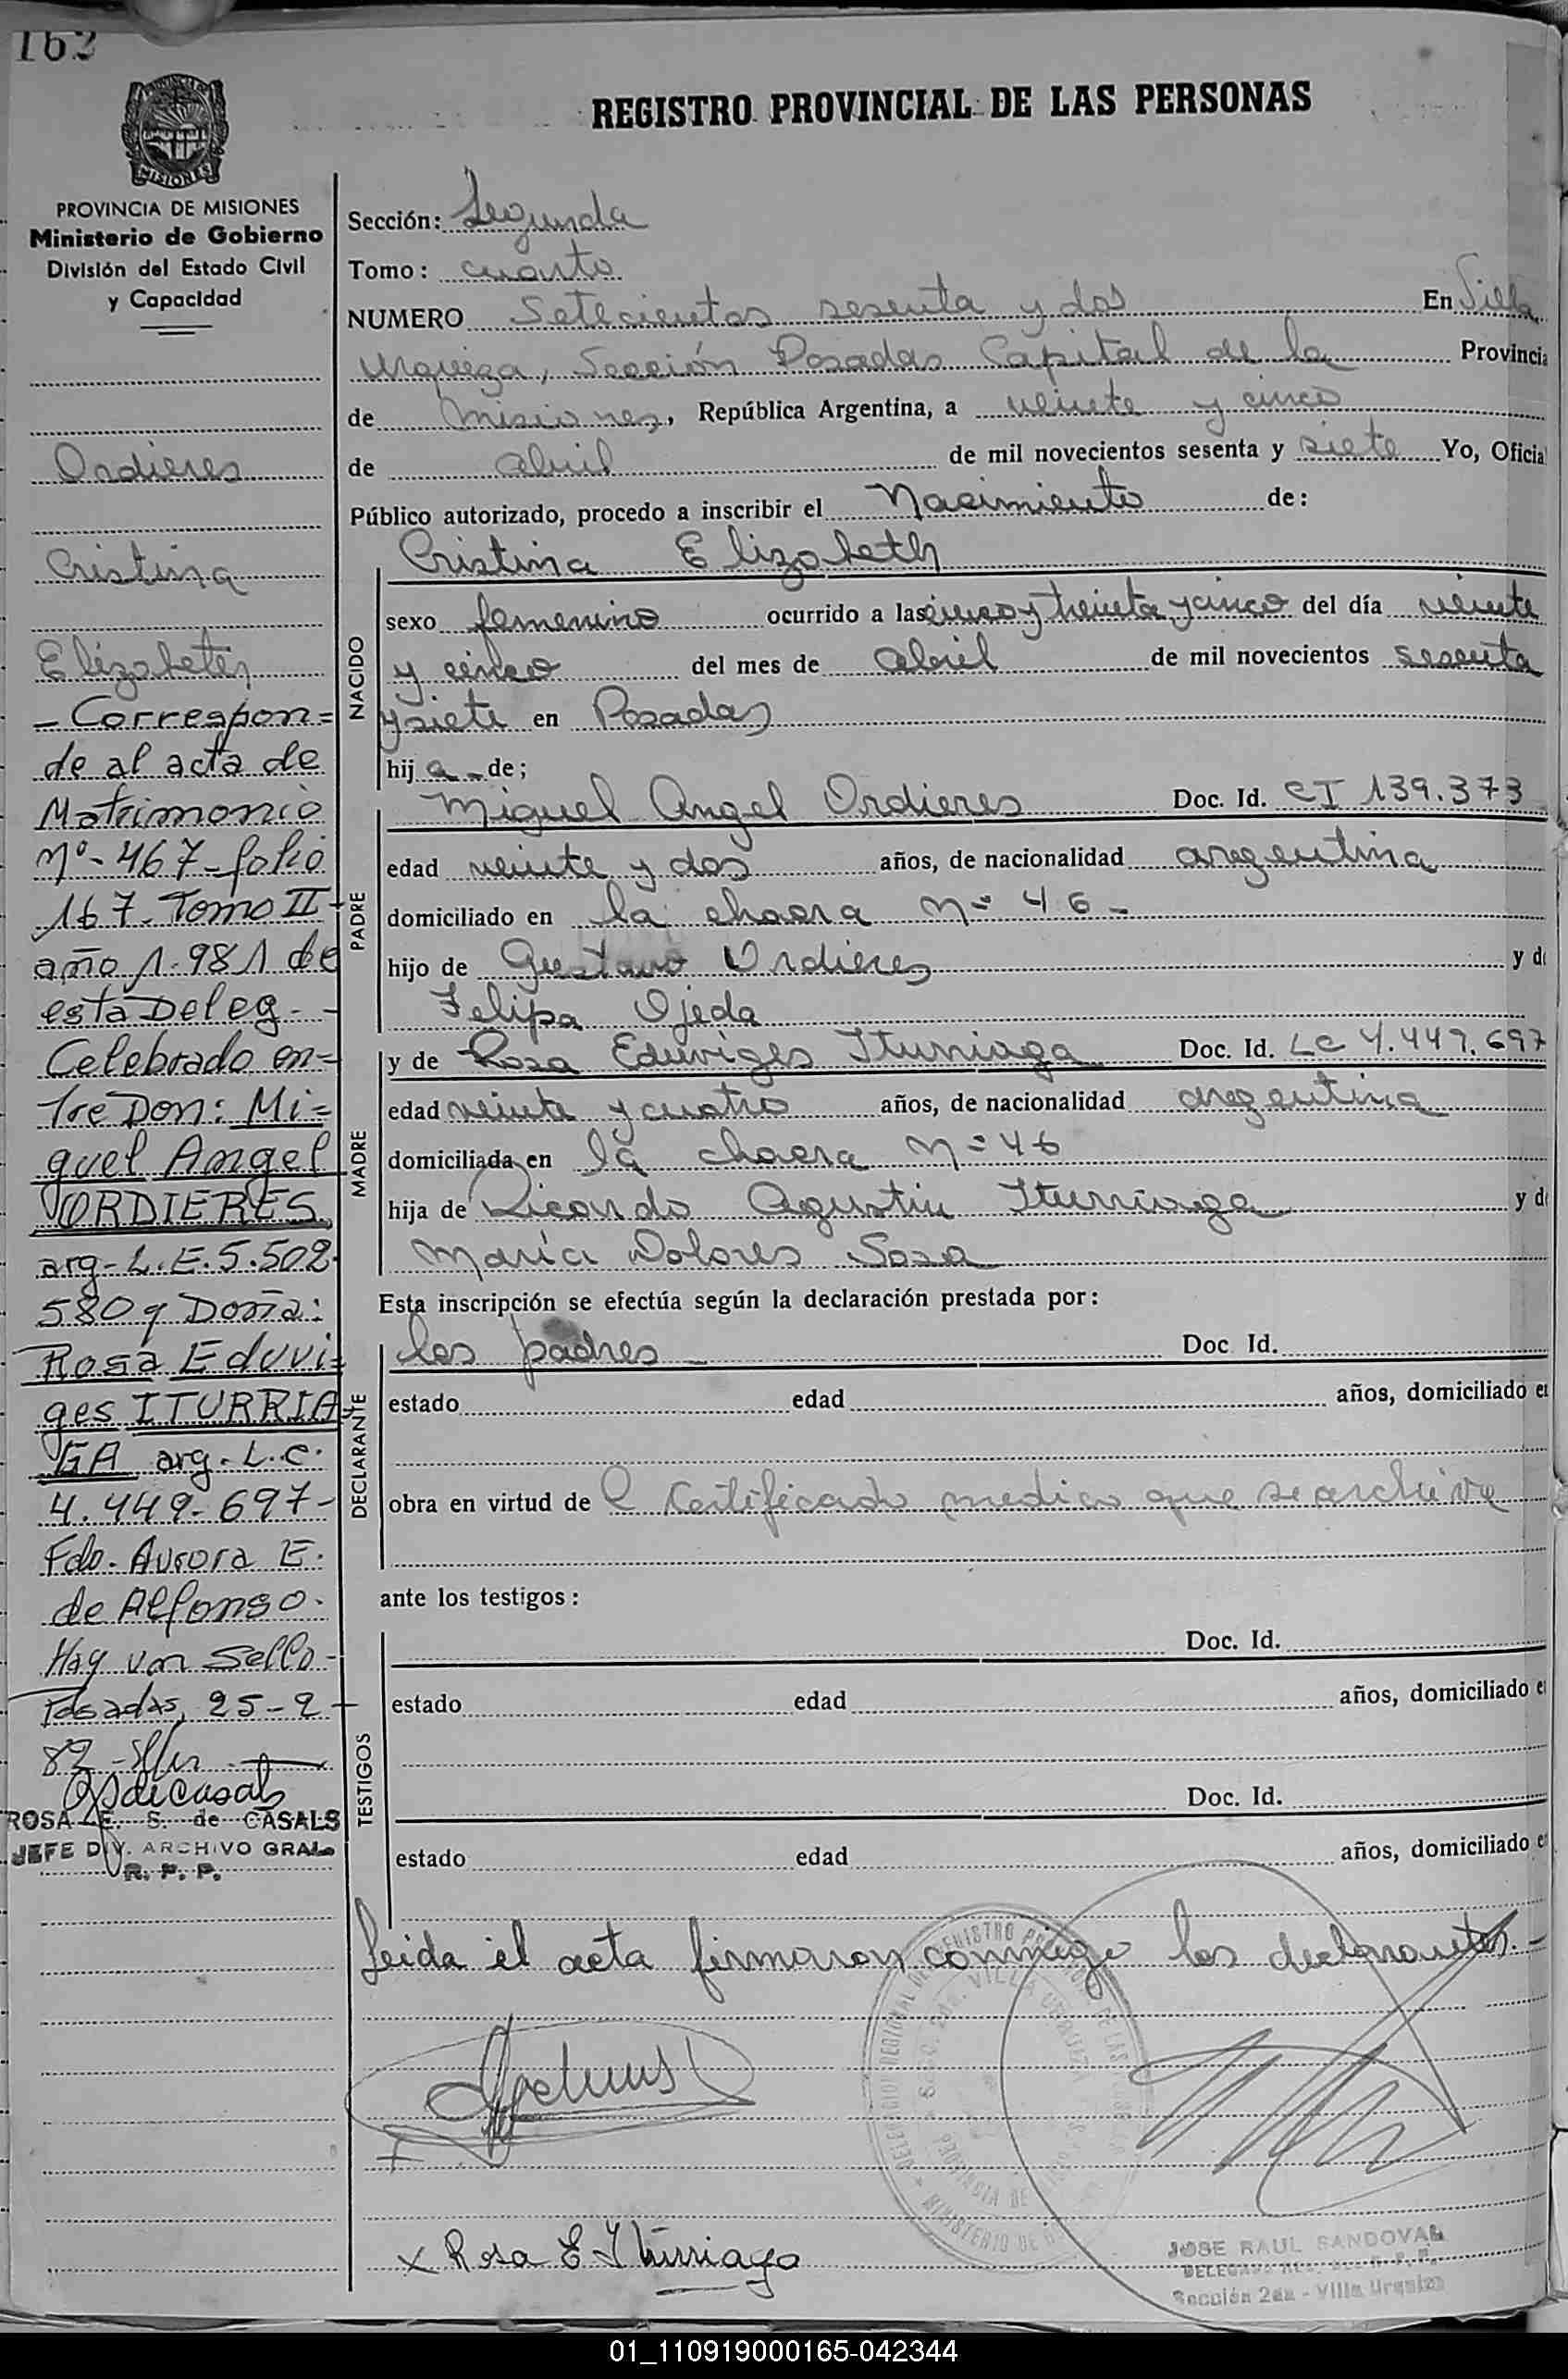 162
REGISTRO PROVINCIAL DE LAS PERSONAS
MISIONES
PROVINCIA DE MISIONES
Ministerio de Gobierno
División del Estado Civil
y Capacidad
Ordieres
Cristina
Elizabeth
- Correspon=
de al acta de
Matrimonio
Nº - 467 - folio
167. Tomo II -
año 1.981 de
esta Deleg. -
Celebrado en=
tre Don: Mi=
guel Angel
ORDIERES
arg - L.E. 5.502.
580 y Doña:
Rosa Eduvi=
ges ITURRIA=
GA arg. L.C.
4.449.697 -
Fdo. Aurora E.
de Alfonso.
Hay un Sello -
Posadas, 25-2-
82
ROSA E. S. de CASALS
JEFE DIV. ARCHIVO GRAL.
R. P. P.
Sección: Segunda
Tomo: cuarto
NUMERO Setecientos sesenta y dos En Villa
Urquiza, Sección Posadas Capital de la Provincia
de Misiones, República Argentina, a veinte y cinco
de abril de mil novecientos sesenta y siete Yo, Oficial
Público autorizado, procedo a inscribir el Nacimiento de:
Cristina Elizabeth
NACIDO
sexo femenino ocurrido a las cinco y treinta y cinco del día veinte
y cinco del mes de abril de mil novecientos sesenta
y siete en Posadas
hij a de;
PADRE
Miguel Angel Ordieres Doc. Id. CI 139.373
edad veinte y dos años, de nacionalidad argentina
domiciliado en la chacra nº 46 -
hijo de Gustavo Ordieres y d
Felipa Ojeda
MADRE
y de Rosa Eduviges Iturriaga Doc. Id. LC 4.449.697
edad veinte y cuatro años, de nacionalidad argentina
domiciliada en la chacra nº 46
hija de Ricardo Agustin Iturriaga y d
María Dolores Sosa
Esta inscripción se efectúa según la declaración prestada por:
DECLARANTE
los padres Doc Id.
estado edad años, domiciliado e
obra en virtud de Certificado medico que se archiva
ante los testigos:
TESTIGOS
Doc. Id.
estado edad años, domiciliado e
Doc. Id.
estado edad años, domiciliado e
Leida el acta firmaron conmigo los declarantes. -
x Rosa E. Iturriaga
JOSE RAUL SANDOVAL
Sección 2da - Villa Urquiza
01_110919000165-042344